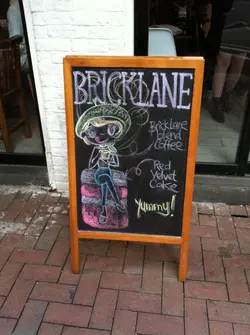 BRICKLANE
Bricklane
blend
Coffee
Red
Velvet
Cake
Yummy!